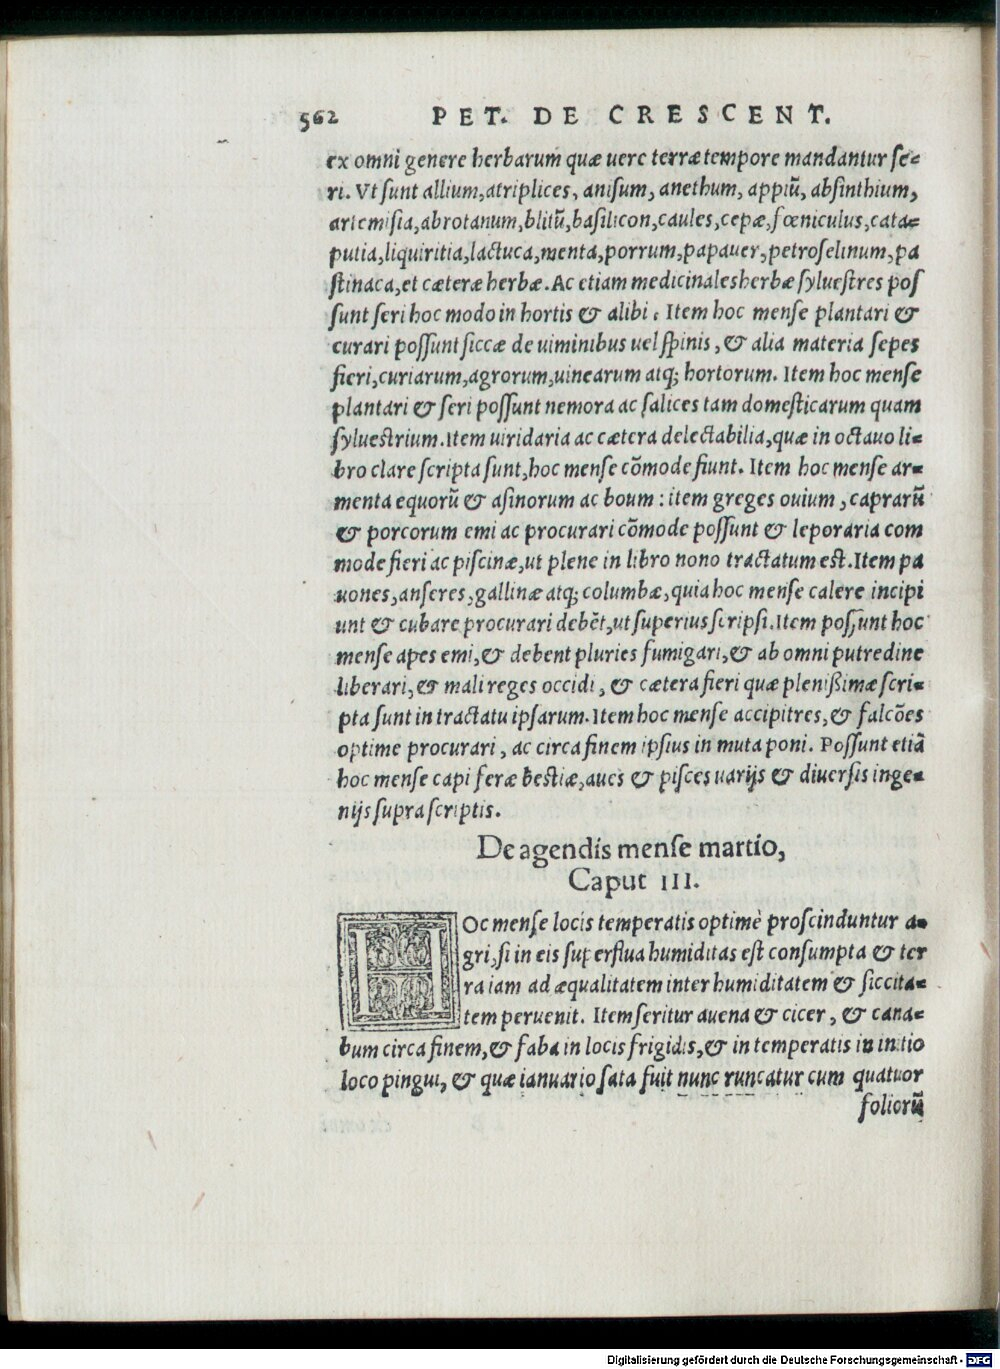 562 PET. DE CRESCENT.
ex omni genere herbarum quæ uere terræ tempore mandantur se-
ri. Vt sunt allium, atriplices, anisum, anethum, appiū, absinthium,
artemisia, abrotanum, blitū, basilicon, caules, cepæ, fœniculus, cata-
putia, liquiritia, lactuca, menta, porrum, papauer, petroselinum, pa
stinaca, et cæteræ herbæ. Ac etiam medicinales herbæ syluestres pos
sunt seri hoc modo in hortis & alibi. Item hoc mense plantari &
curari possunt siccæ de uiminibus uel spinis, & alia materia sepes
fieri, curiarum, agrorum, uinearum atq; hortorum. Item hoc mense
plantari & seri possunt nemora ac salices tam domesticarum quam
syluestrium. Item uiridaria ac cætera delectabilia, quæ in octauo li-
bro clare scripta sunt, hoc mense cōmode fiunt. Item hoc mense ar-
menta equorū & asinorum ac boum: item greges ouium, caprarū
& porcorum emi ac procurari cōmode possunt & leporaria com
mode fieri ac piscinæ, ut plene in libro nono tractatum est. Item pa
uones, anseres, gallinæ atq; columbæ, quia hoc mense calere incipi
unt & cubare procurari debēt, ut superius scripsi. Item possunt hoc
mense apes emi, & debent pluries fumigari, & ab omni putredine
liberari, & mali reges occidi, & cætera fieri quæ plenißimæ scri-
pta sunt in tractatu ipsarum. Item hoc mense accipitres, & falcōes
optime procurari, ac circa finem ipsius in muta poni. Possunt etiā
hoc mense capi feræ bestiæ, aues & pisces uarijs & diuersis inge-
nijs supra scriptis.
De agendis mense martio,
Caput III.
HOc mense locis temperatis optimè proscinduntur a-
gri, si in eis superflua humiditas est consumpta & ter
ra iam ad æqualitatem inter humiditatem & siccita-
tem peruenit. Item seritur auena & cicer, & cana-
bum circa finem, & faba in locis frigidis, & in temperatis in initio
loco pingui, & quæ ianuario sata fuit nunc runcatur cum quatuor
foliorū
Digitalisierung gefördert durch die Deutsche Forschungsgemeinschaft - DFG